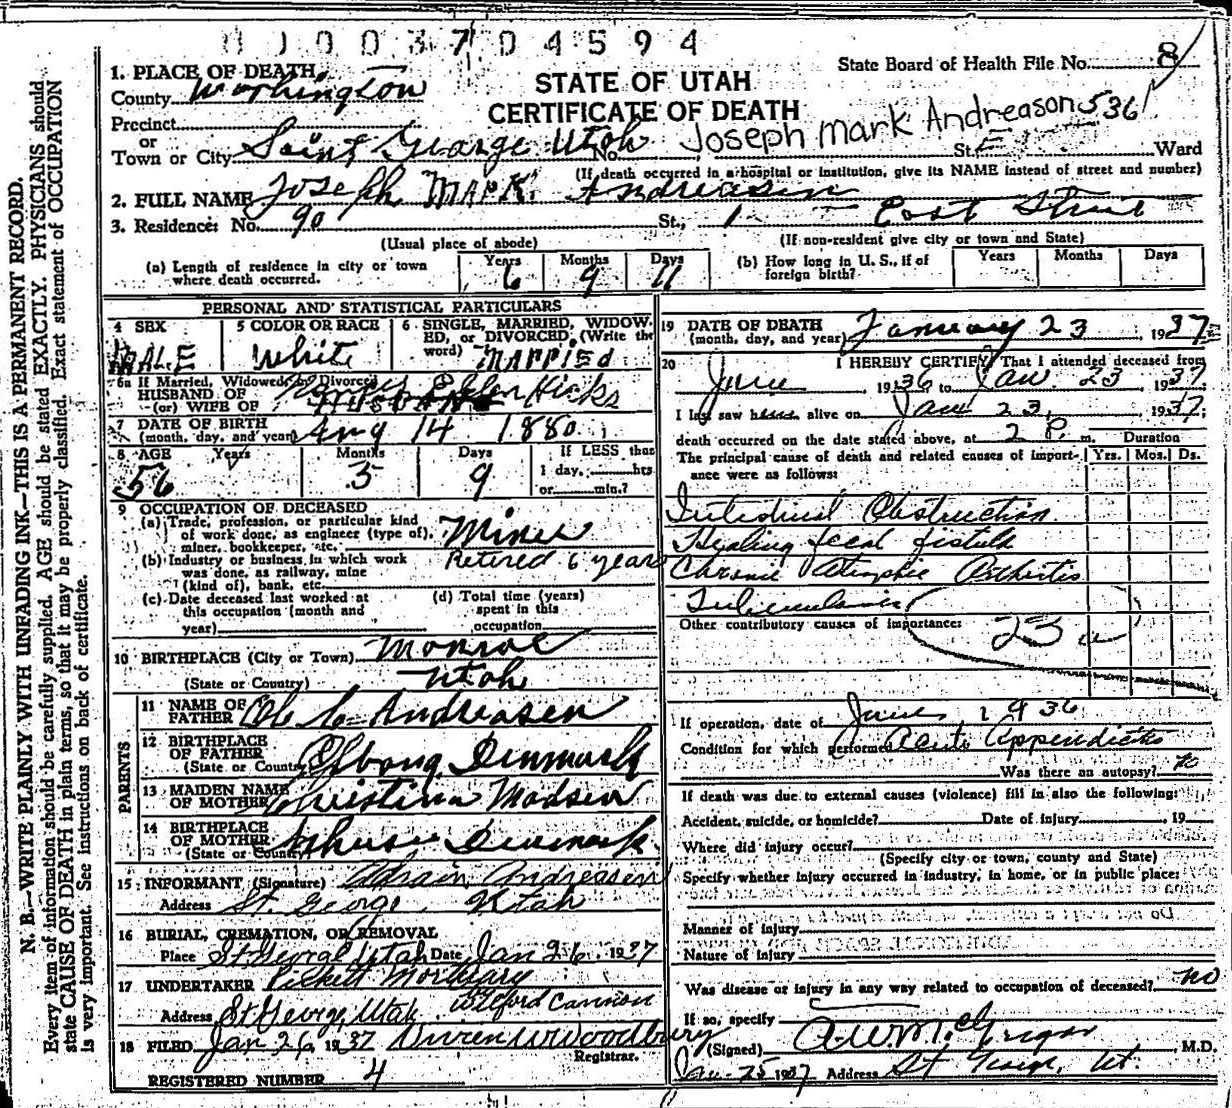 8 0 0 0 3 7 0 4 5 9 4
State Board of Health File No. 8
STATE OF UTAH
CERTIFICATE OF DEATH
Joseph Mark Andreason 536
1. PLACE OF DEATH
County Washington
Precinct
or
Town or City Saint George Utah No. St. E Ward
(If death occurred in a hospital or institution, give its NAME instead of street and number)
2. FULL NAME Joseph MARK Andreasen
3. Residence: No. 90 St., 1 East Street
(Usual place of abode) (If non-resident give city or town and State)
(a) Length of residence in city or town where death occurred. Years 6 Months 9 Days 11
(b) How long in U. S., if of foreign birth? Years Months Days
PERSONAL AND STATISTICAL PARTICULARS
4 SEX MALE
5 COLOR OR RACE White
6 SINGLE, MARRIED, WIDOWED, or DIVORCED, (Write the word) MARRIED
6a If Married, Widowed, or Divorced
HUSBAND OF Ellen Hicks
(or) WIFE OF
7 DATE OF BIRTH
(month, day, and year) Aug 14 1880
8 AGE Years 56 Months 5 Days 9 If LESS than
1 day, hrs
or min.?
9 OCCUPATION OF DECEASED
(a) Trade, profession, or particular kind of work done, as engineer (type of), miner, bookkeeper, etc. Miner
(b) Industry or business in which work was done, as railway, mine (kind of), bank, etc. Retired 6 years
(c) Date deceased last worked at this occupation (month and year)
(d) Total time (years) spent in this occupation
10 BIRTHPLACE (City or Town) Monroe
(State or Country) Utah
PARENTS
11 NAME OF FATHER Ole C Andreasen
12 BIRTHPLACE OF FATHER
(State or Country) Denmark
13 MAIDEN NAME OF MOTHER Christina Madsen
14 BIRTHPLACE OF MOTHER
(State or Country) Denmark
15 INFORMANT (Signature) Adrain Andreasen
Address St. George Utah
16 BURIAL, CREMATION, OR REMOVAL
Place St George Utah Date Jan 26, 1937
17 UNDERTAKER Pickett Mortuary
Address St George, Utah Wilford Cannon
18 FILED Jan 26, 1937 Woodbury
Registrar.
REGISTERED NUMBER 4
19 DATE OF DEATH
(month, day, and year) January 23, 1937
20 I HEREBY CERTIFY That I attended deceased from
June 1936 to Jan. 23, 1937
I last saw h alive on Jan 23, 1937;
death occurred on the date stated above, at 2 P. m. Duration
The principal cause of death and related causes of importance were as follows: Yrs. Mos. Ds.
Intestinal Obstruction
Healing fecal fistula
Chronic Atrophic Arthritis
Tuberculosis
Other contributory causes of importance: 23 a
If operation, date of June, 1936
Condition for which performed Acute Appendicitis
Was there an autopsy? no
If death was due to external causes (violence) fill in also the following:
Accident, suicide, or homicide? Date of injury , 19
Where did injury occur?
(Specify city or town, county and State)
Specify whether injury occurred in industry, in home, or in public place:
Manner of injury
Nature of injury
Was disease or injury in any way related to occupation of deceased? no
If so, specify
(Signed) A.W. McGregor, M.D.
Jan. 25, 1937 Address St George, Ut.
N. B.—WRITE PLAINLY WITH UNFADING INK—THIS IS A PERMANENT RECORD.
Every item of information should be carefully supplied. AGE should be stated EXACTLY. PHYSICIANS should
state CAUSE OF DEATH in plain terms, so that it may be properly classified. Exact statement of OCCUPATION
is very important. See instructions on back of certificate.